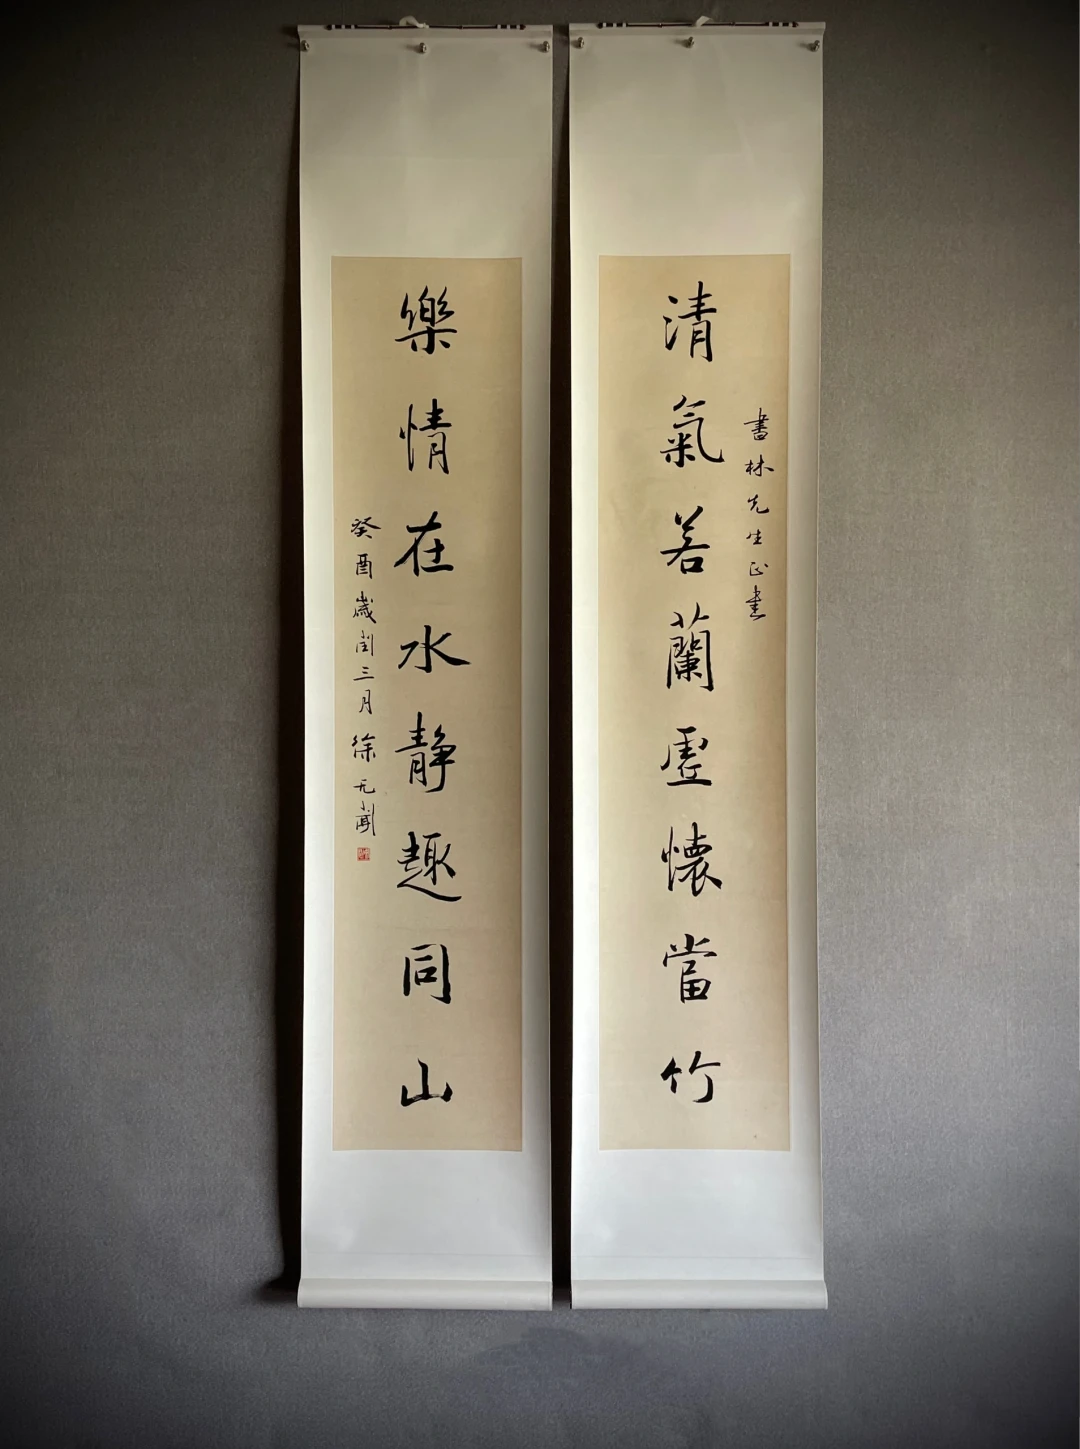 書林先生正書
清氣若蘭虛懷當竹
樂情在水靜趣同山
癸酉歲閏三月徐无聞